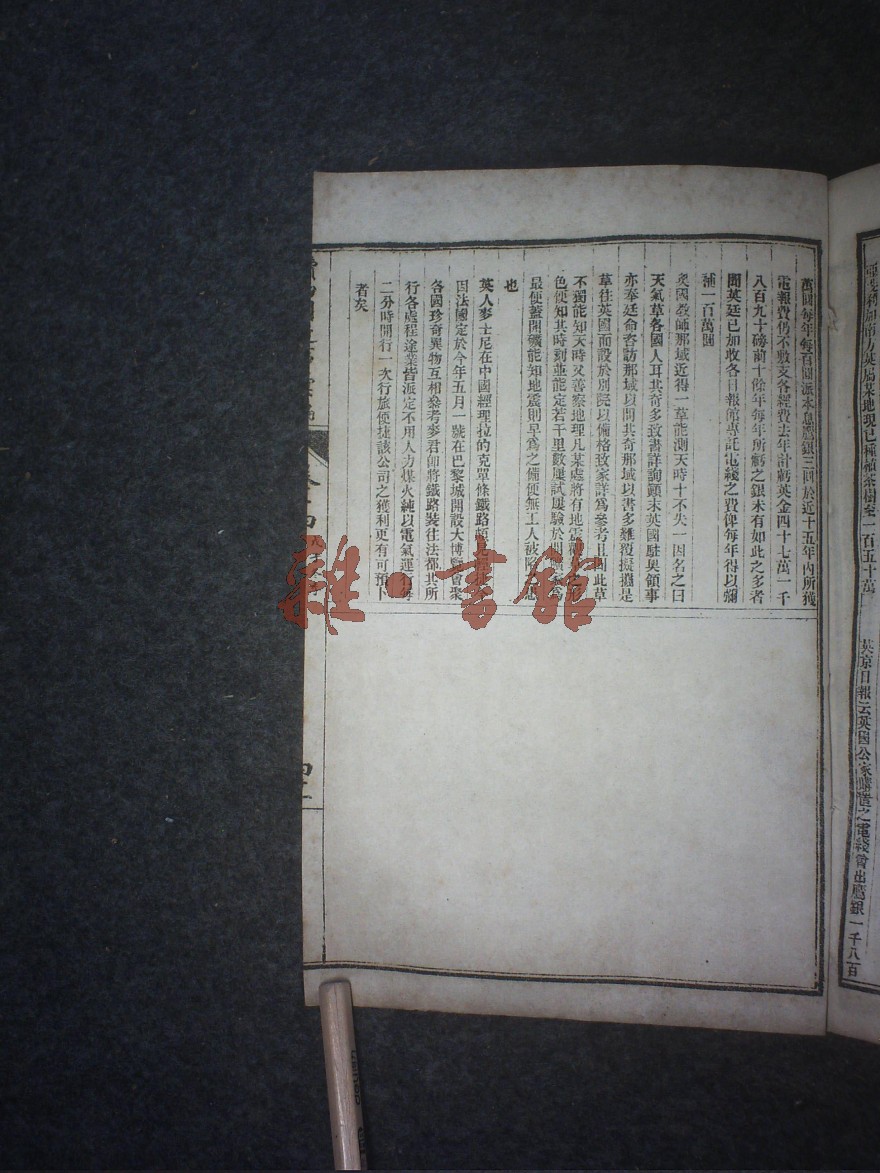 英京日報云英國公家購造之電綫曾出鷹銀一千八百
萬圓每年每百圓派本息鷹銀三圓於近十五年內所獲
電報費仍不敷支各經費去年計虧英金四十七萬一千
八百九十磅前十餘年每年所虧之銀未有如此之多者
聞英廷已加收各日報館專託電綫之費俾每年得以彌
補一百萬圓
國教師那域近得一草能測天時十不失一因名之曰
天氣草各國人耳其奇多致書詳詢顛末英國駐奧領事
亦奉廷命咨訪那域以問其奇那域以書多難覆擬攜是
草往英國而設於別院以備格致家詳爲參考且則此草
不獨能知天時又善察地理凡某處將有地震
色便知其時刻並能定若干里數屢試屢驗於開
最便蓋開礦能知地震則早爲之備便無工人被
也
英人麥士尼在中國經理拉的克單條鐵路
因法國定於今年五月一號在巴黎城開設大博覽會聚
各國珍奇異物互相參考麥君卽將鐵路裝往法都其所
行各處程途業皆派定不用人力煤火純以電氣運
二分時開行一次行旅便捷該公司之獲利更有可預卜
者矣
雜·書館